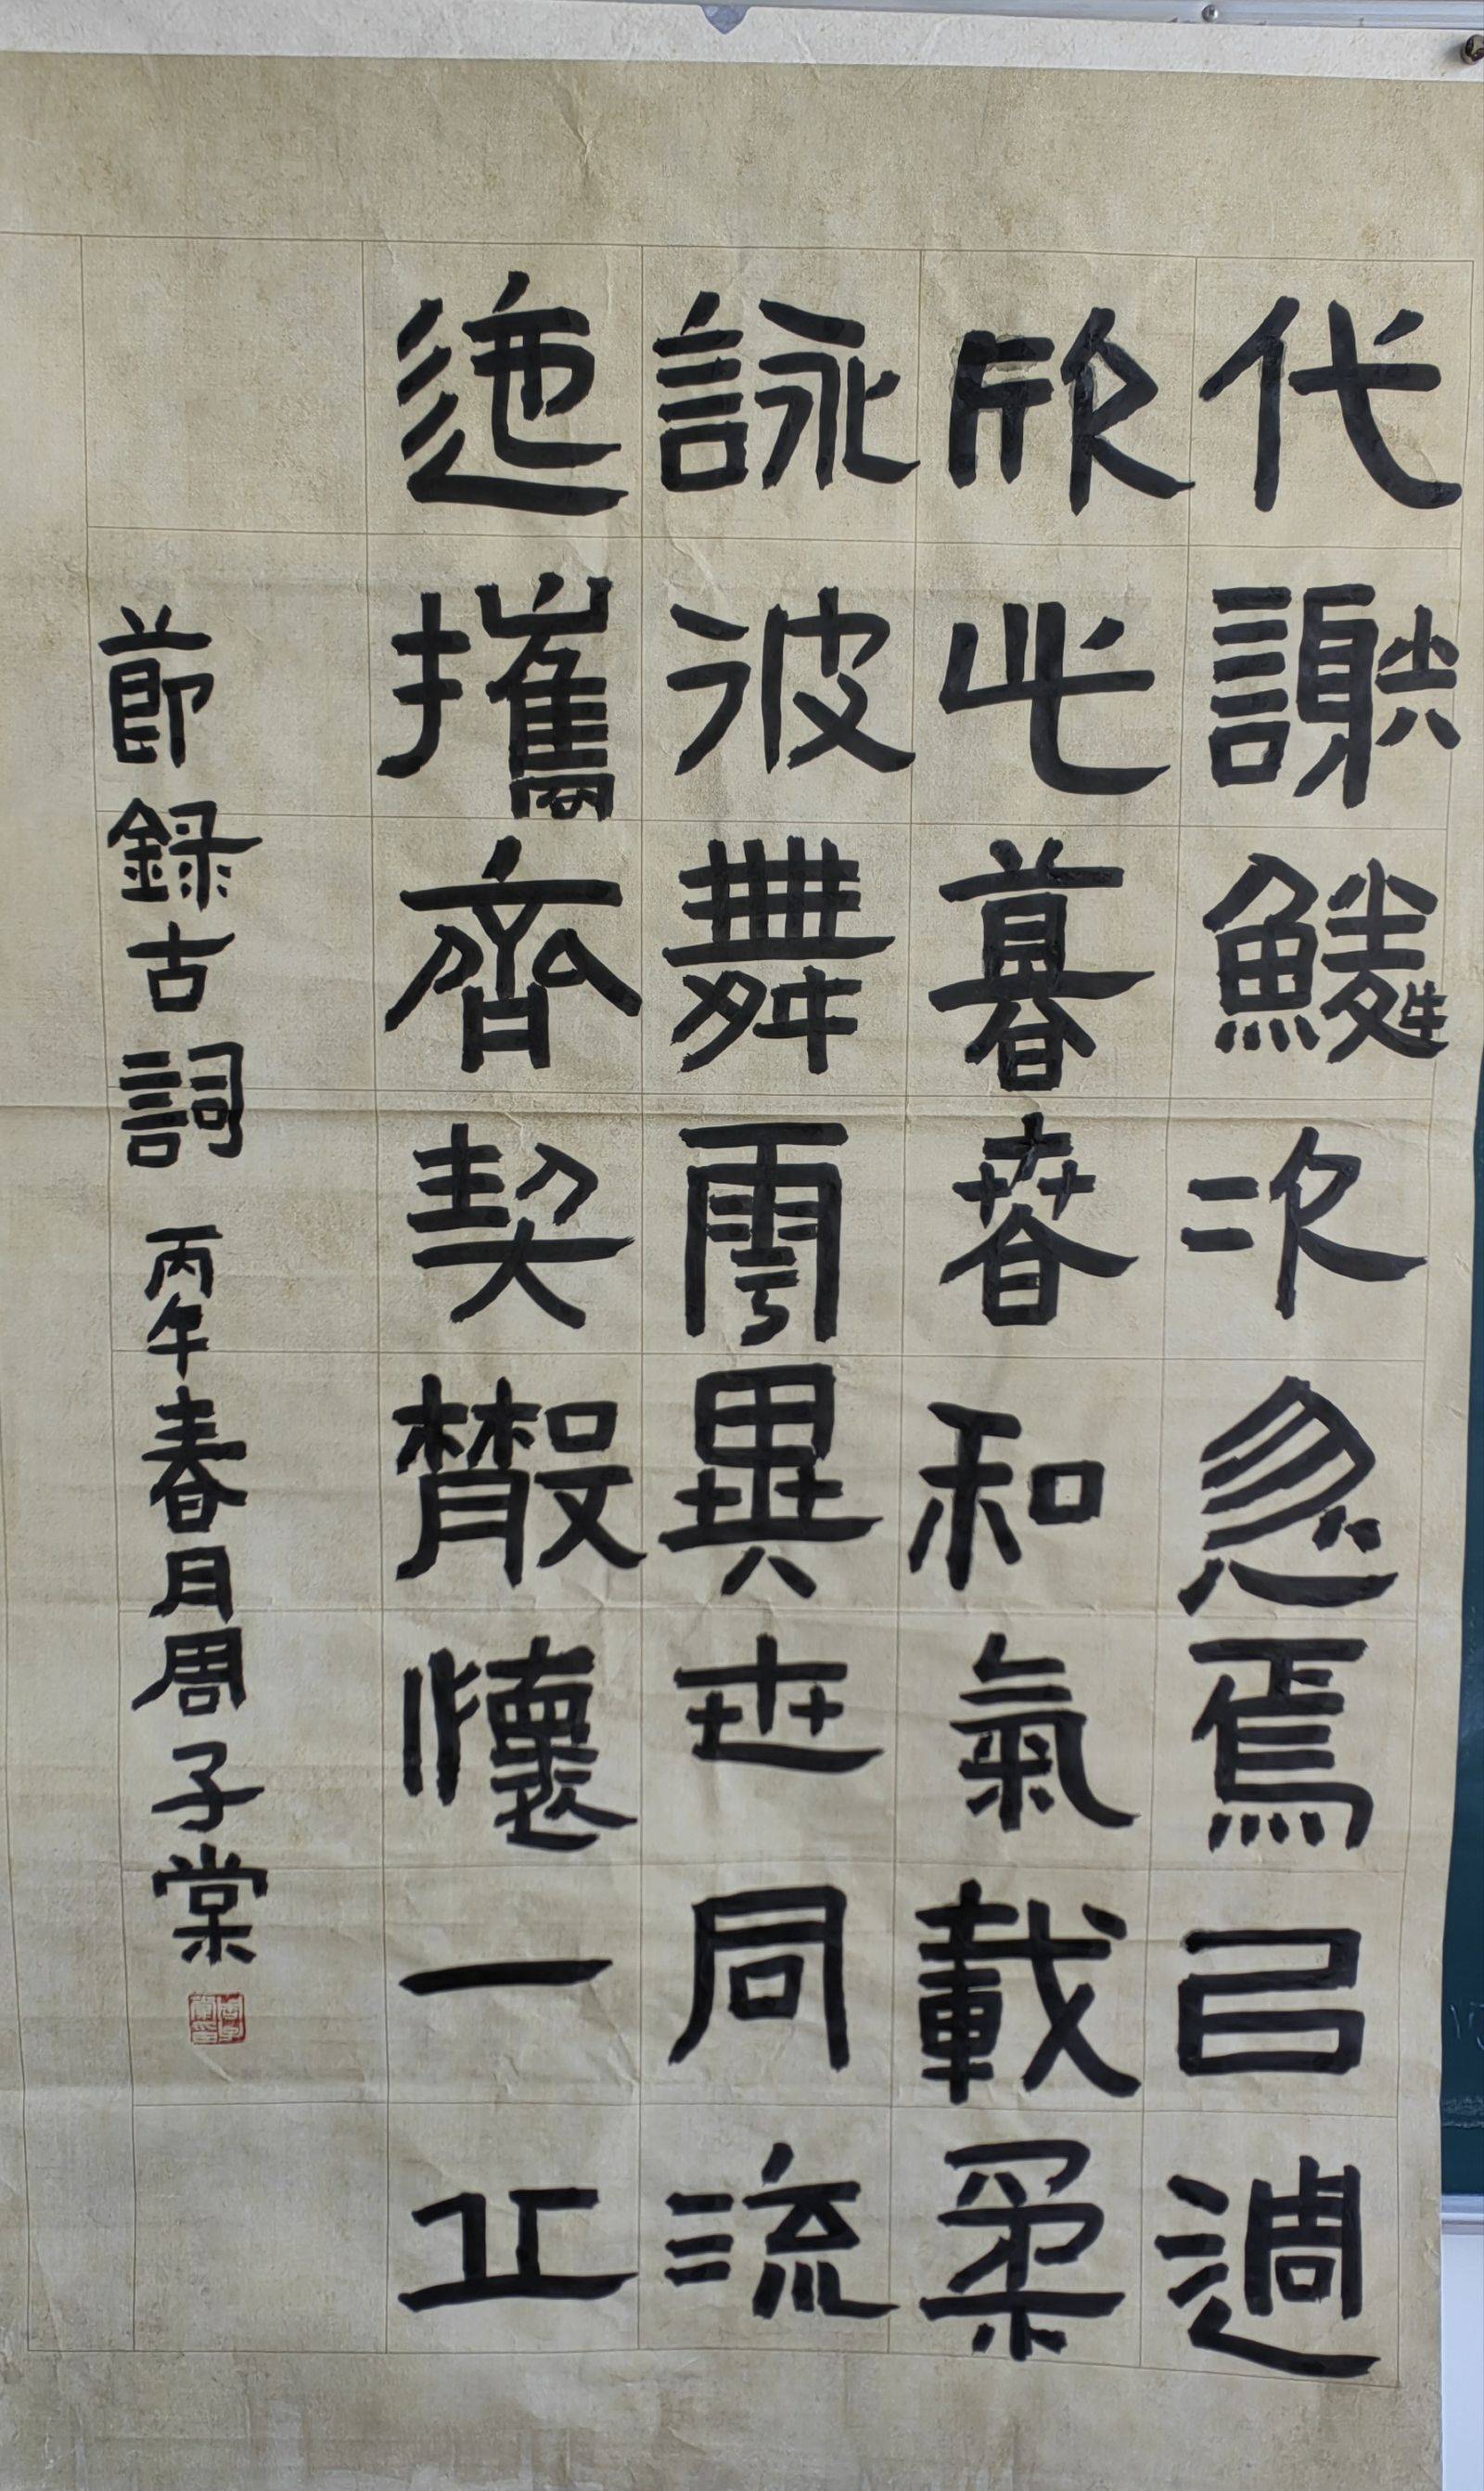 代謝鱗次忽焉㠯週
欣此暮春和氣載柔
詠彼舞雩異世同流
迺攜齊契散懷一丘
節録古詞 丙午春月周子棠